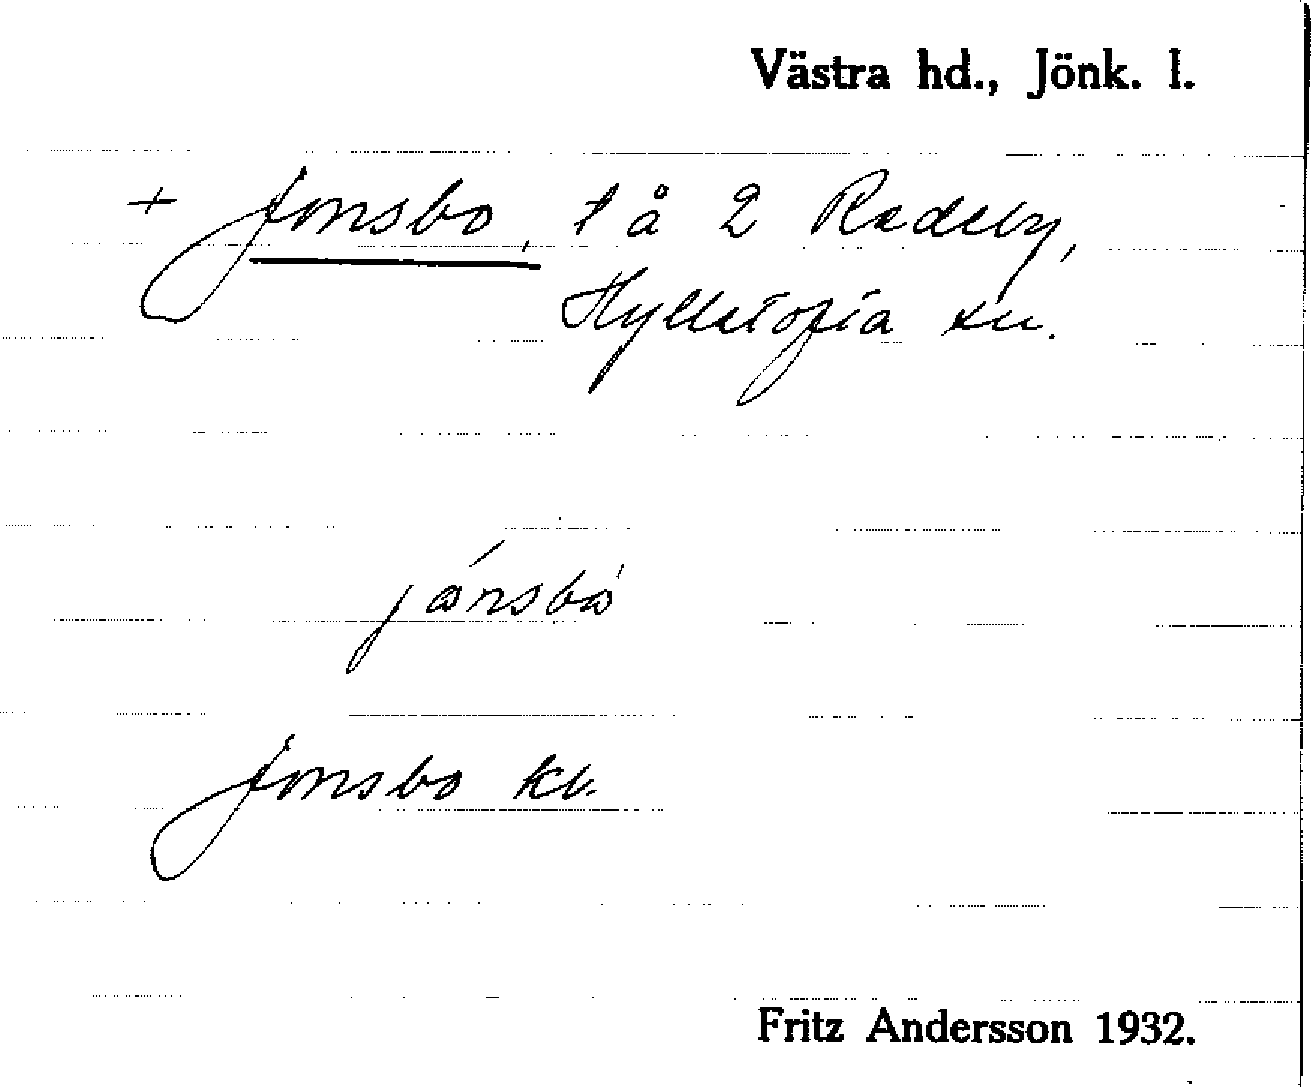 Västra hd., Jönk. l.
+ Jonsbo, t å 2 Radeby,
Hylletofta sn.
jånsbo
Jonsbo kv.
Fritz Andersson 1932.